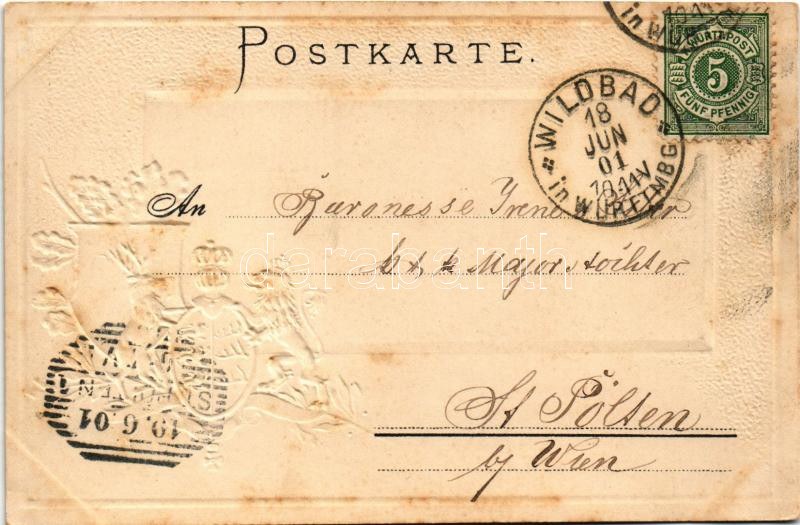 POSTKARTE.
WÜRTT. POST
5
FÜNF PFENNIG
WILDBAD
18
JUN
01
10-11V
in WÜRTTMBG
in WÜR
An Baronesse Irene
k. k. Majorstochter
St Pölten
by Wien
darabanth
ST. PÖLTEN
19.6.01